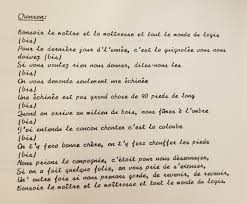 Chanson:
Bonsoir le maître et la maîtresse et tout le monde du logis
(bis)
Pour la dernière jour d'l'année, c'est la guignolée vous nous
doivez (bis)
Si vous voulez rien nous donner, dites-nous les
(bis)
On vous demande seulement une échinée
(bis)
Une échinée est pas grand chose de 90 pieds de long
(bis)
Quand on arrive au milieu du bois, nous fûmes à l'ombre
(bis)
J'ai entendu le coucou chanter c'est la colombe
(bis)
On t'y fera bonne chère, on t'y fera chauffer les pieds
(bis)
Nous prions la compagnie, c'était pour nous désennuyer,
Si on a fait quelque folie, on vous prie de s'excuser,
Un' autre fois si nous prenons garde, de revenir, de revenir,
Bonsoir le maître et la maîtresse et tout le monde du logis.